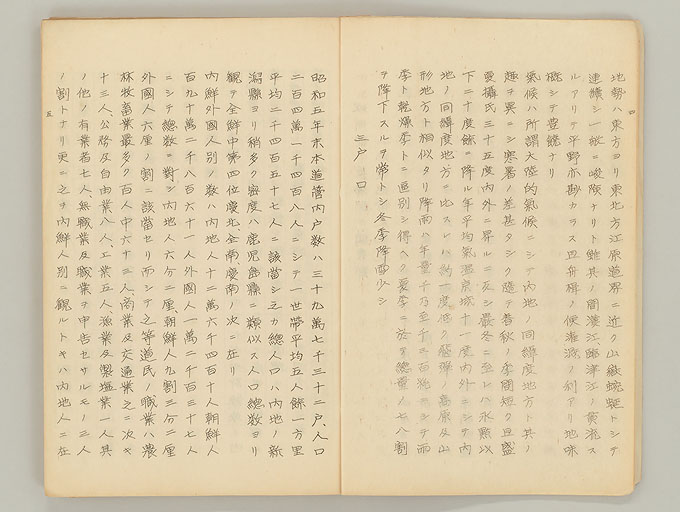 四
地勢ハ東方ヨリ東北方江原道界ニ近ク山嶽蜿蜒トシテ
連續シ一般ニ峻険ナリト雖其ノ間漢江臨津江ノ貫流ス
ルアリテ平野亦尠カラス且舟楫ノ便灌漑ノ利アリ地味
概シテ豊饒ナリ
氣候ハ所謂大陸的氣候ニシテ内地ノ同緯度地方ト其ノ
趣ヲ異ニシ寒暑ノ差甚タシク隨テ春秋ノ季間短ク且盛
夏攝氏三十五度内外ニ昇ルニ反シ最冬ニ至レハ氷點以
下二十度餘ニ降ル年平均氣温京城十一度内外ニシテ内
地ノ同緯度地方ニ比スレハ約一度低ク ノ高原及山
形地方ト相似タリ降雨ハ年量千乃至千三百粍ニシテ雨
季ト乾燥季トニ區別シ得ヘク夏季ニ於テ總量ノ七八割
ヲ降下スルヲ常トシ冬季降雪少シ
三戸口
昭和五年末本道管内戸数ハ三十九萬七千三十二戸、人口
二百四萬一千四百八人ニシテ一世帯平均五人餘一方里
平均二千四百五十七人ニ該當シ之カ總人口ハ内地ノ新
潟縣ヨリ稍多ク密度ハ鹿児島縣ニ類似ス人口總数ヨリ
観テ全鮮中第四位慶北、全南慶南ノ次ニ在リ
内鮮外國人別ノ数ハ内地人十二萬六千四百十人朝鮮人
百九萬二千八百六十一人外國人一萬二千百三十七人
ニシテ總数ニ對シ内地人六分二厘、朝鮮人九割三分二厘
外國人六厘ノ割ニ該當セリ而シテ之等道民ノ職業ハ農
林牧畜業最多ク百人中六十二人、商業及交通業之ニ次キ
十三人公務及自由業八人、工業五人漁業及製塩業一人其
ノ他ノ有業者七人、無職業及職業ヲ申告セサルモノ三人
ノ割トナリ更ニ之ヲ内鮮人別ニ観ルトキハ内地人ニ在
五